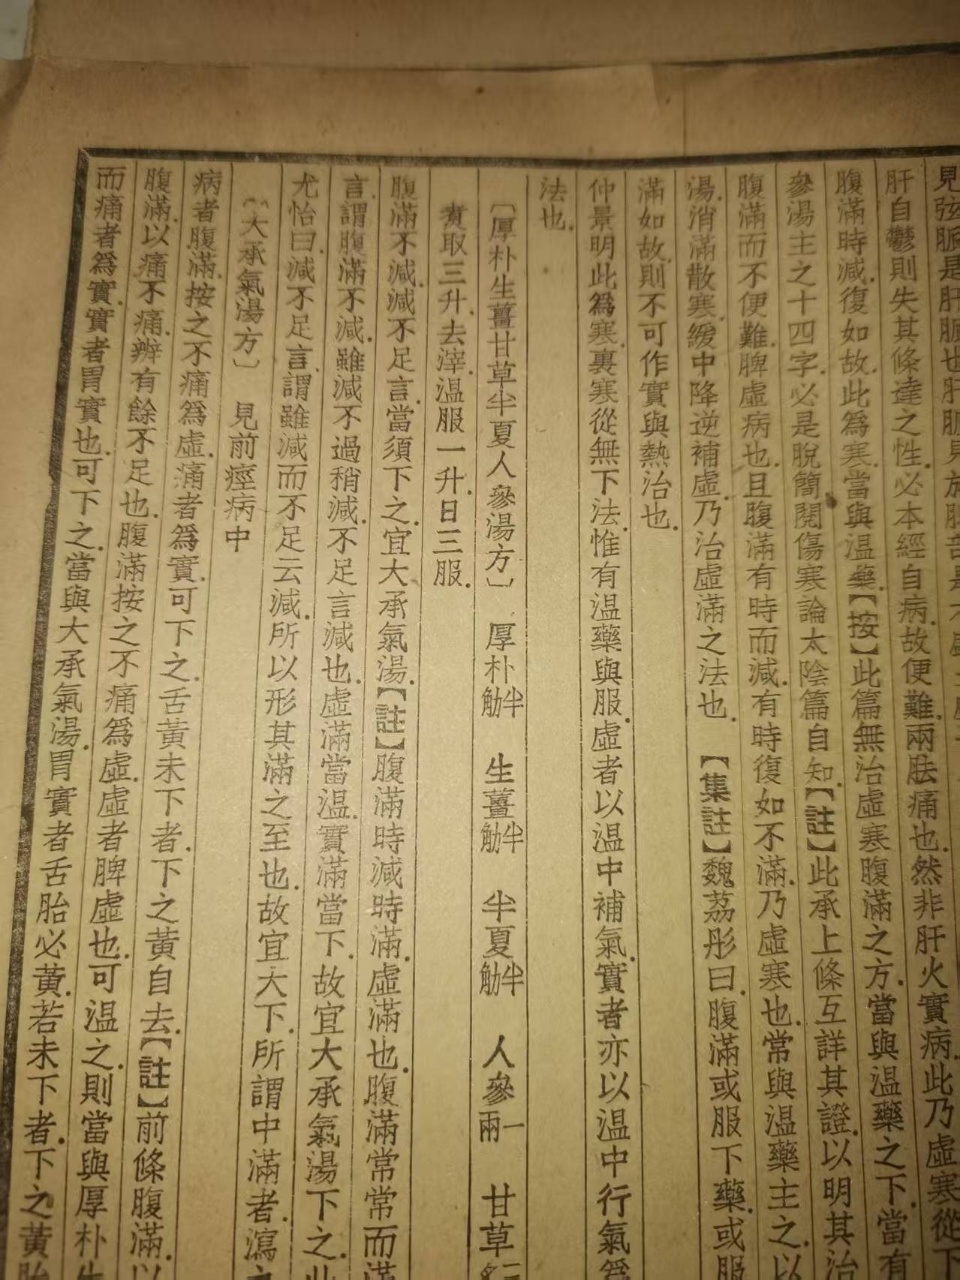 見弦脈是肝脈也肝脈見於脾部是木
肝自鬱則失其條達之性必本經自病故便難兩胠痛也然非肝火實病此乃虛寒從下
腹滿時減復如故此為寒當與温藥【按】此篇無治虛寒腹滿之方當與温藥之下當有
參湯主之十四字必是脫簡閱傷寒論太陰篇自知【註】此承上條互詳其證以明其治
腹滿而不便難脾虛病也且腹滿有時而減有時復如不滿乃虛寒也常與温藥主之以
湯消滿散寒緩中降逆補虛乃治虛滿之法也【集註】魏荔彤曰腹滿或服下藥或服
滿如故則不可作實與熱治也
仲景明此爲寒裏寒從無下法惟有温藥與服虛者以温中補氣實者亦以温中行氣爲
法也
〔厚朴生薑甘草半夏人參湯方〕 厚朴半觔 生薑半觔 半夏半觔 人參一兩 甘草二
煑取三升去滓温服一升日三服
腹滿不減減不足言當須下之宜大承氣湯【註】腹滿時減時滿虛滿也腹滿常常而滿
言謂腹滿不減雖減不過稍減不足言減也虛滿當温實滿當下故宜大承氣湯下之此
尤怡曰減不足言謂雖減而不足云減所以形其滿之至也故宜大下所謂中滿者瀉之
〔大承氣湯方〕 見前痙病中
病者腹滿按之不痛為虛痛者為實可下之舌黃未下者下之黃自去【註】前條腹滿以
腹滿以痛不痛辨有餘不足也腹滿按之不痛爲虛虛者脾虛也可温之則當與厚朴生
而痛者爲實實者胃實也可下之當與大承氣湯胃實者舌胎必黃若未下者下之黃胎